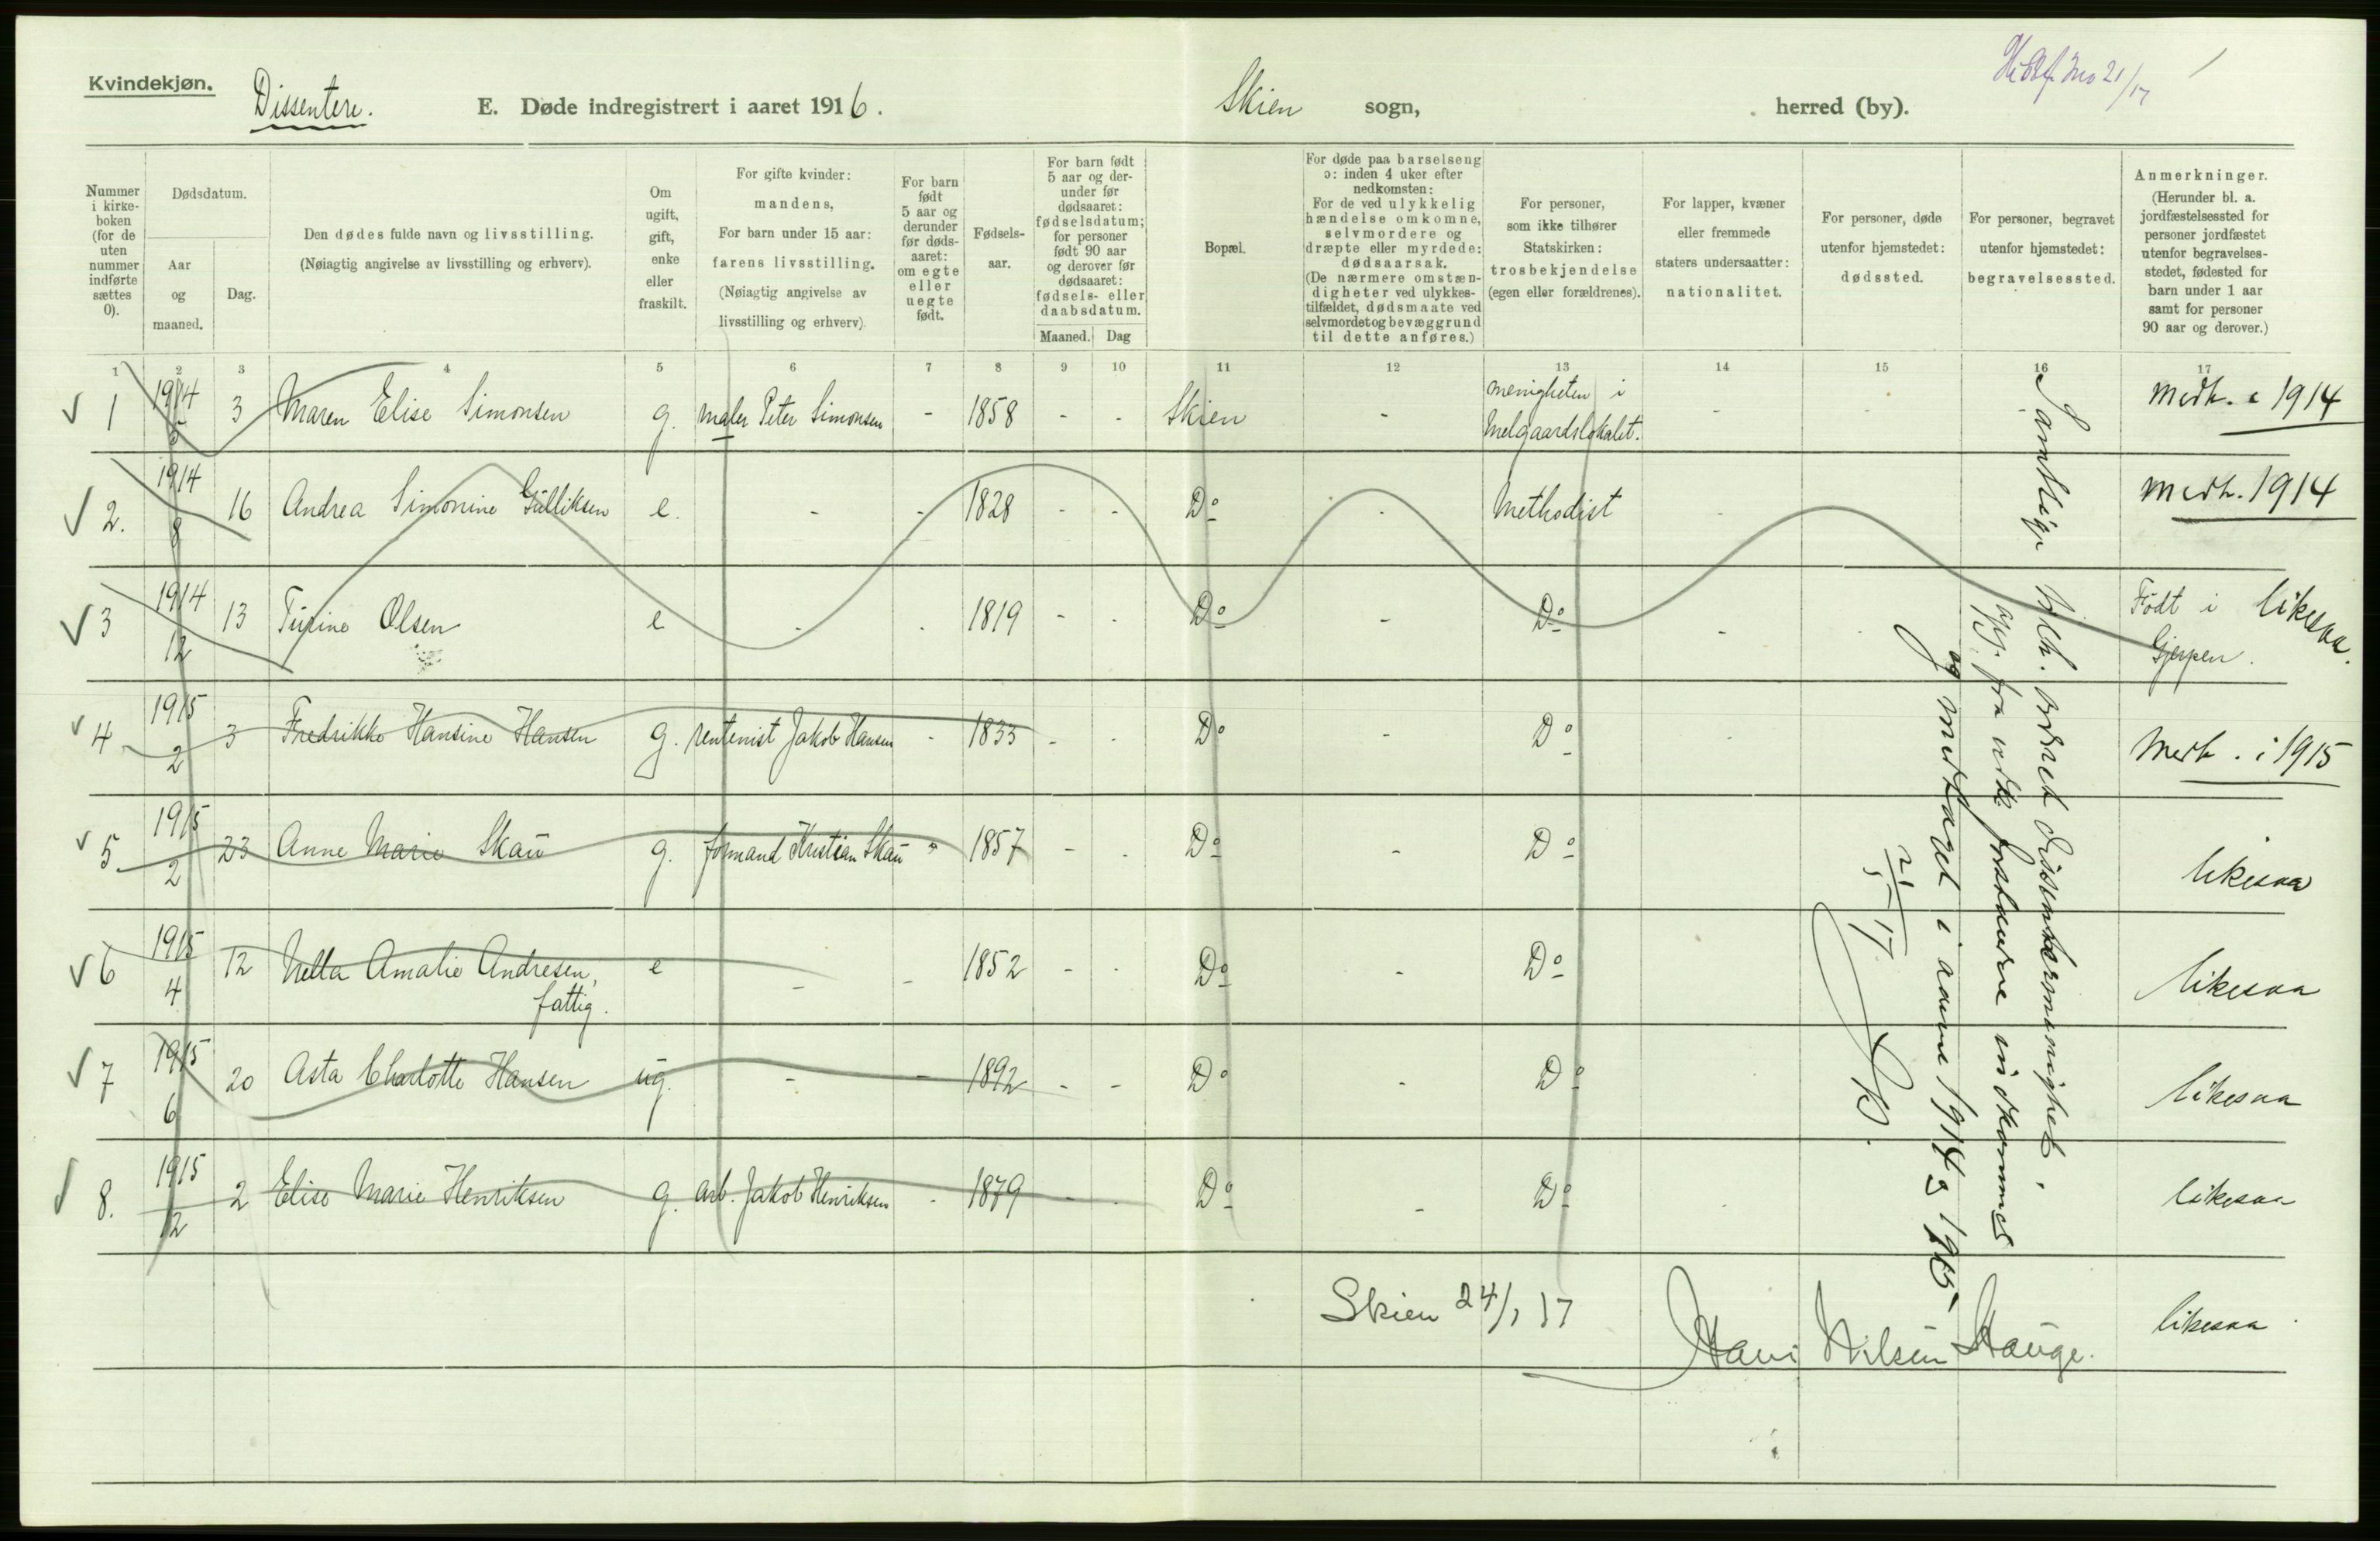 Kvindekjøn.
Dissentere.
E. Døde indregistrert i aaret 1916.
Skien sogn,
herred (by).
21/17
Nummer i kirke-boken (for de uten nummer indførte sættes 0).
Dødsdatum.
Aar og maaned.
Dag.
Den dødes fulde navn og livsstilling.
(Nøiagtig angivelse av livsstilling og erhverv).
Om ugift, gift, enke eller fraskilt.
For gifte kvinder: mandens,
For barn under 15 aar: farens livsstilling.
(Nøiagtig angivelse av livsstilling og erhverv).
For barn født 5 aar og derunder før døds-aaret: om egte eller uegte født.
Fødsels-aar.
For barn født 5 aar og der-under før dødsaaret: fødselsdatum; for personer født 90 aar og derover før dødsaaret: fødsels- eller daabsdatum.
Maaned. Dag
Bopæl.
For døde paa barselseng ɔ: inden 4 uker efter nedkomsten:
For de ved ulykkelig hændelse omkomne, selvmordere og dræpte eller myrdede: dødsaarsak.
(De nærmere omstæn-digheter ved ulykkes-tilfældet, dødsmaate ved selvmordet og bevæggrund til dette anføres.)
For personer, som ikke tilhører Statskirken: trosbekjendelse (egen eller forældrenes).
For lapper, kvæner eller fremmede staters undersaatter: nationalitet.
For personer, døde utenfor hjemstedet: dødssted.
For personer, begravet utenfor hjemstedet: begravelsessted.
Anmerkninger.
(Herunder bl. a. jordfæstelsessted for personer jordfæstet utenfor begravelses-stedet, fødested for barn under 1 aar samt for personer 90 aar og derover.)
1 2 3 4 5 6 7 8 9 10 11 12 13 14 15 16 17
1 1914 5 3 Maren Elise Simonsen g. maler Peter Simonsen - 1858 - - Skien - menigheten i Melgaardslokalet. - - - Medt. i 1914
2. 1914 8 16 Andrea Simonine Gulliksen e. - - 1828 - - Do - Methodist - Medt. 1914
3 1914 12 13 Turine Olsen e - - 1819 - - Do - Do - - Født i Gjerpen. likesaa.
4 1915 2 3 Fredrikke Hansine Hansen g. rentenist Jakob Hansen - 1833 - - Do - Do - Medt. i 1915
5 1915 2 23 Anne Marie Skau g. formand Kristian Skau " 1857 - - Do - Do likesaa
6 1915 4 12 Nella Amalie Andresen, fattig. e - - 1852 - - Do - Do likesaa
7 1915 6 20 Asta Charlotte Hansen ug. - - 1892 - - Do - Do likesaa
8. 1915 12 2 Elise Marie Henriksen g. arb. Jakob Henriksen - 1879 - - Do - Do likesaa
Samtlige
opg. fra vedk. forstandere indkommet
og medtaget i aarene 1914 & 1915
2/5 17.
Skien 24/1 17
Hans Nilsen Hauge.
likesaa